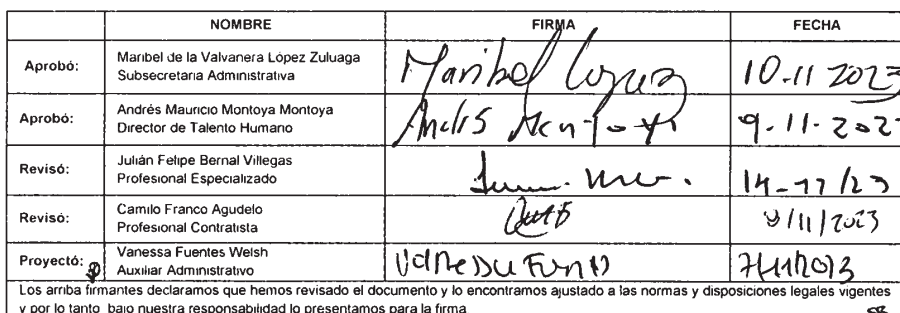 NOMBRE FIRMA FECHA
Aprobó: Maribel de la Valvanera López Zuluaga Maribel Lopez 10.11 2023
Subsecretaria Administrativa
Aprobó: Andrés Mauricio Montoya Montoya 9.11.202
Director de Talento Humano
Revisó: Julián Felipe Bernal Villegas
Profesional Especializado
Revisó: Camilo Franco Agudelo 9/11/2023
Profesional Contratista
Proyectó: Vanessa Fuentes Welsh
Auxiliar Administrativo
Los arriba firmantes declaramos que hemos revisado el documento y lo encontramos ajustado a las normas y disposiciones legales vigentes
y por lo tanto bajo nuestra responsabilidad lo presentamos para la firma